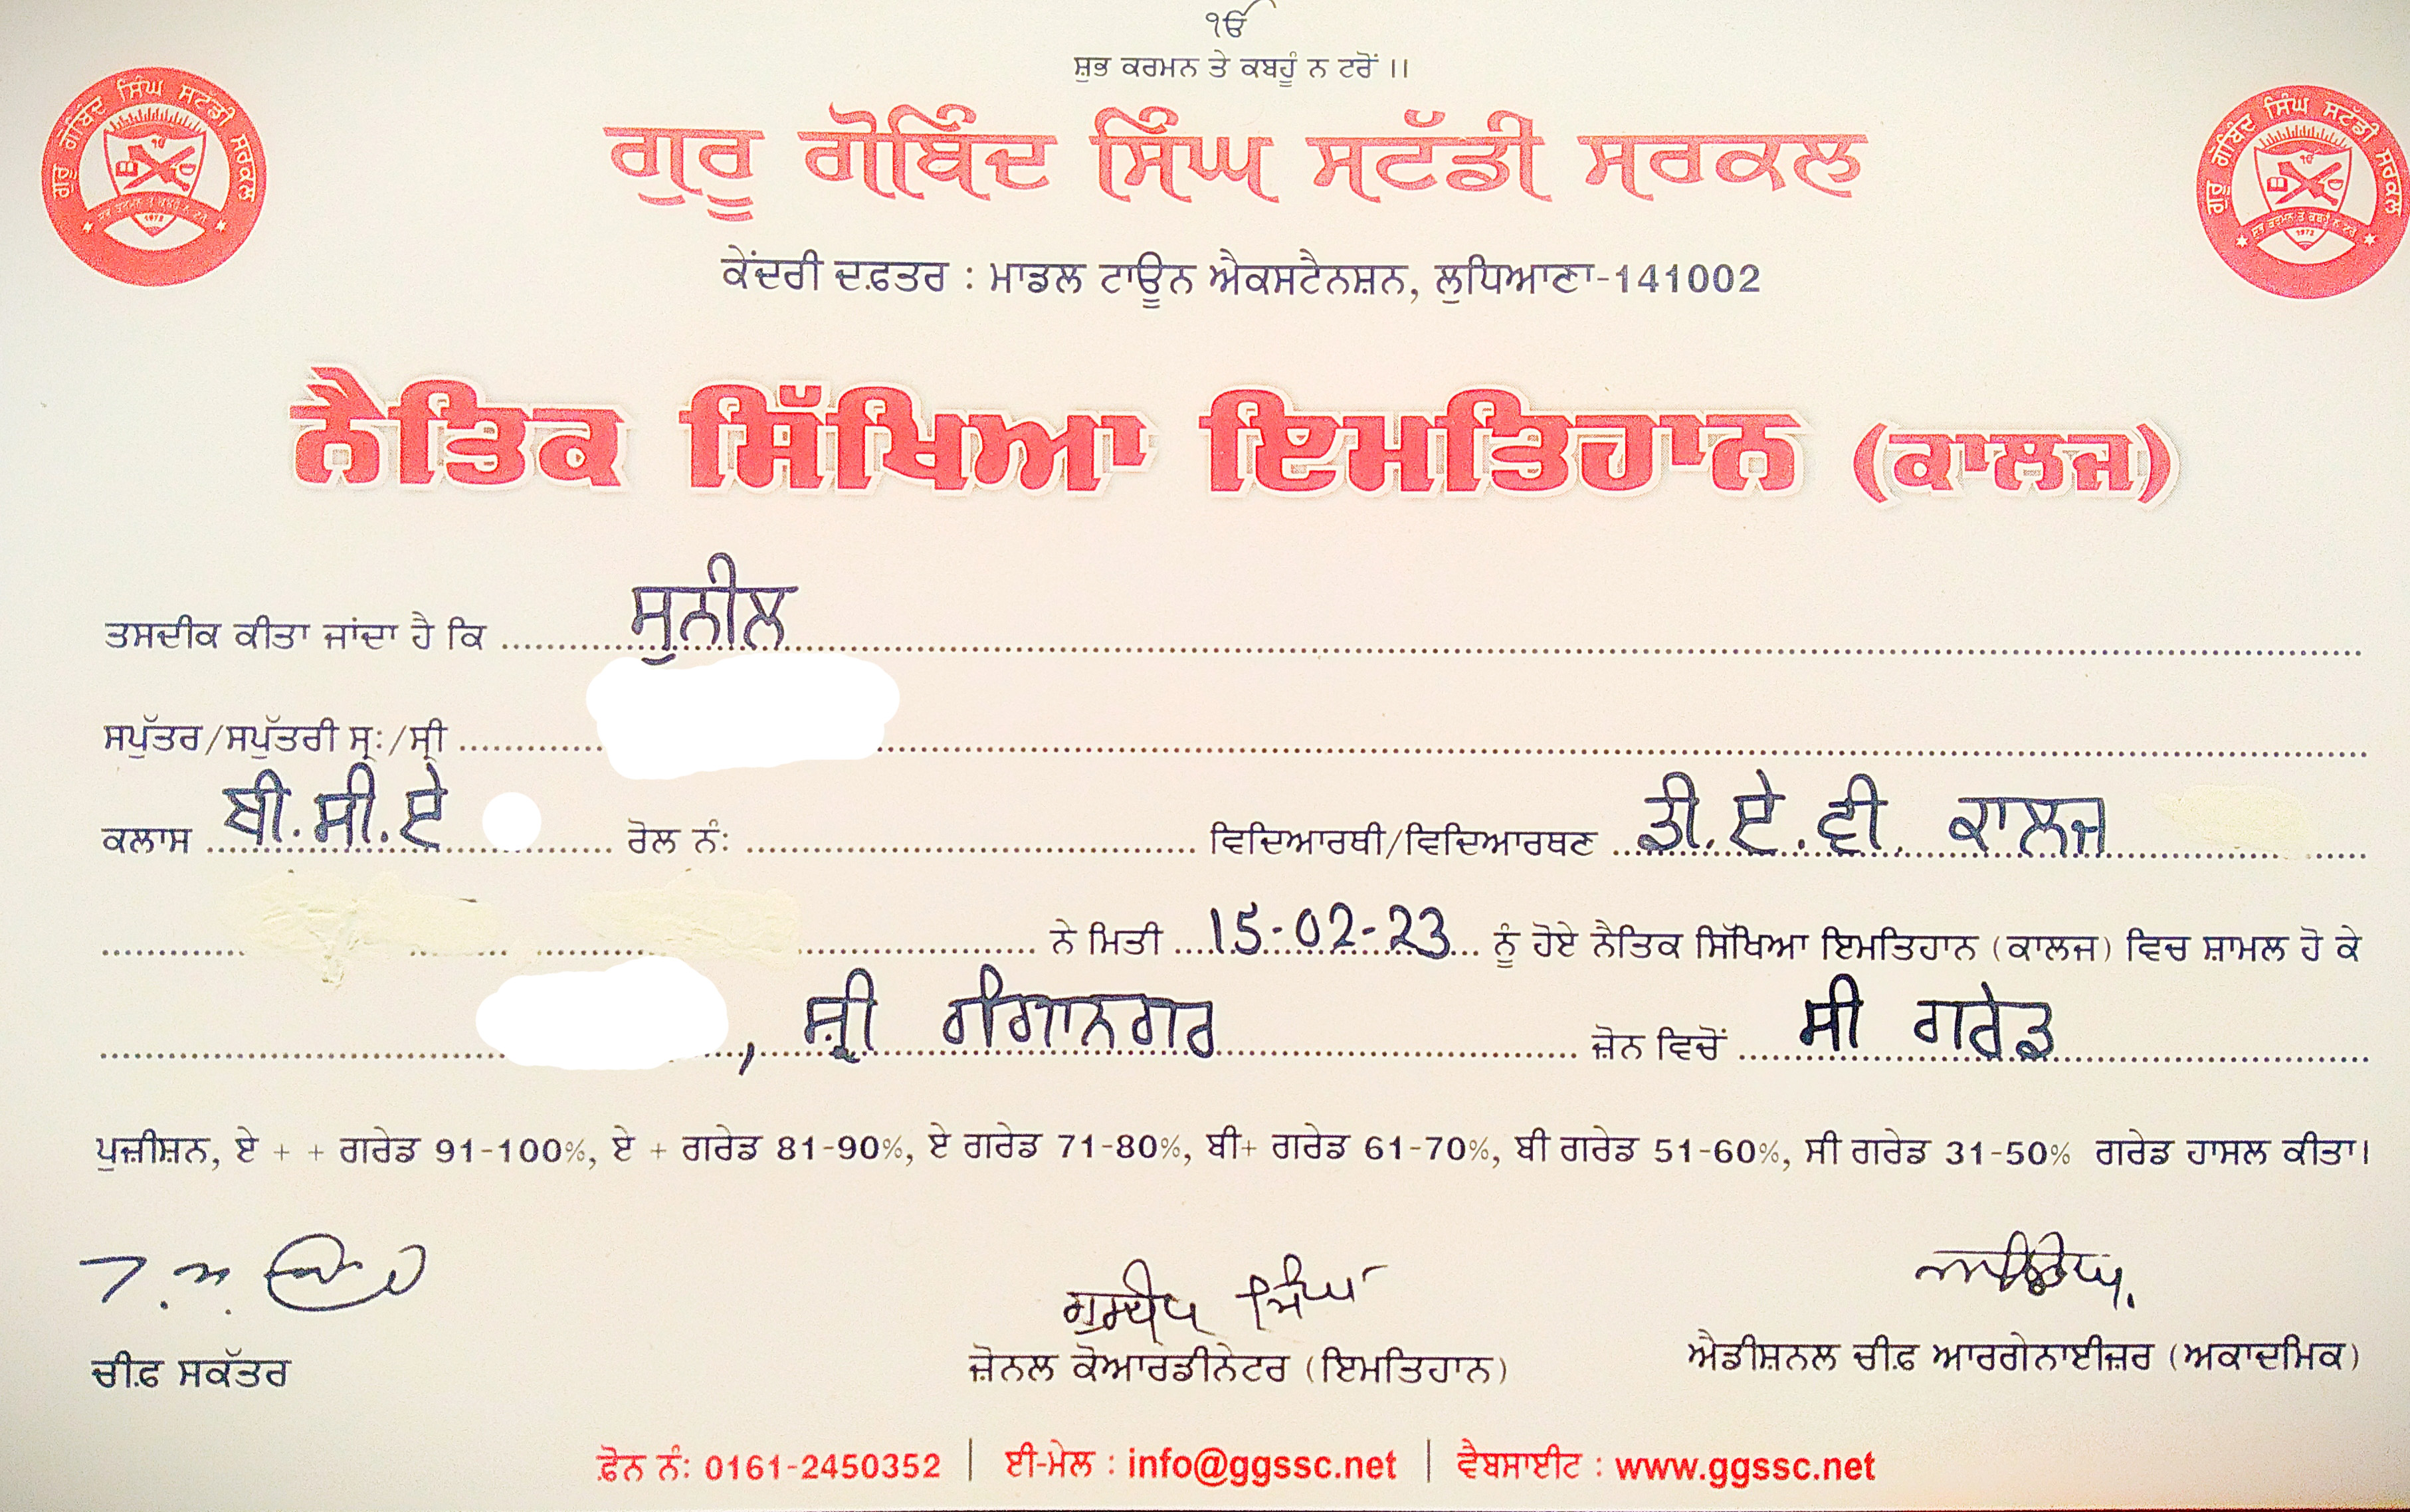 ੴ
ਸ਼ੁਭ ਕਰਮਨ ਤੇ ਕਬਹੂੰ ਨ ਟਰੋਂ ।।
ਗੁਰੂ ਗੋਬਿੰਦ ਸਿੰਘ ਸਟੱਡੀ ਸਰਕਲ
ਗੁਰੂ ਗੋਬਿੰਦ ਸਿੰਘ ਸਟੱਡੀ ਸਰਕਲ
ਸ਼ੁਭ ਕਰਮਨ ਤੇ ਕਬਹੂੰ ਨ ਟਰੋਂ
1972
ਗੁਰੂ ਗੋਬਿੰਦ ਸਿੰਘ ਸਟੱਡੀ ਸਰਕਲ
ਸ਼ੁਭ ਕਰਮਨ ਤੇ ਕਬਹੂੰ ਨ ਟਰੋਂ
1972
ਕੇਂਦਰੀ ਦਫ਼ਤਰ : ਮਾਡਲ ਟਾਊਨ ਐਕਸਟੈਨਸ਼ਨ, ਲੁਧਿਆਣਾ-141002
ਨੈਤਿਕ ਸਿੱਖਿਆ ਇਮਤਿਹਾਨ (ਕਾਲਜ)
ਤਸਦੀਕ ਕੀਤਾ ਜਾਂਦਾ ਹੈ ਕਿ ਸੁਨੀਲ
ਸਪੁੱਤਰ/ਸਪੁੱਤਰੀ ਸ੍ਰ:/ਸ੍ਰੀ
ਕਲਾਸ ਬੀ.ਸੀ.ਏ ਰੋਲ ਨੰ: ਵਿਦਿਆਰਥੀ/ਵਿਦਿਆਰਥਣ ਡੀ.ਏ.ਵੀ. ਕਾਲਜ
ਨੇ ਮਿਤੀ 15-02-23 ਨੂੰ ਹੋਏ ਨੈਤਿਕ ਸਿੱਖਿਆ ਇਮਤਿਹਾਨ (ਕਾਲਜ) ਵਿਚ ਸ਼ਾਮਲ ਹੋ ਕੇ
, ਸ਼੍ਰੀ ਗੰਗਾਨਗਰ ਜ਼ੋਨ ਵਿਚੋਂ ਸੀ ਗਰੇਡ
ਪੁਜ਼ੀਸ਼ਨ, ਏ + + ਗਰੇਡ 91-100%, ਏ + ਗਰੇਡ 81-90%, ਏ ਗਰੇਡ 71-80%, ਬੀ+ ਗਰੇਡ 61-70%, ਬੀ ਗਰੇਡ 51-60%, ਸੀ ਗਰੇਡ 31-50% ਗਰੇਡ ਹਾਸਲ ਕੀਤਾ।
ਗੁਰਦੀਪ ਸਿੰਘ
ਚੀਫ਼ ਸਕੱਤਰ ਜ਼ੋਨਲ ਕੋਆਰਡੀਨੇਟਰ (ਇਮਤਿਹਾਨ) ਐਡੀਸ਼ਨਲ ਚੀਫ਼ ਆਰਗੇਨਾਈਜ਼ਰ (ਅਕਾਦਮਿਕ)
ਫ਼ੋਨ ਨੰ: 0161-2450352 | ਈ-ਮੇਲ : info@ggssc.net | ਵੈਬਸਾਈਟ : www.ggssc.net